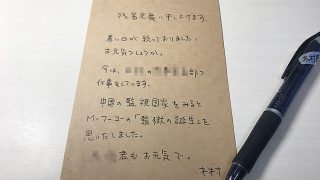 残暑見舞い申し上げます。
暑い日が続いておりました。
お元気でしょうか。
今は、の部で
仕事をしています。
中国の監視国家をみると
M・フーコーの「監獄の誕生」を
思いだしました。
君もお元気で。
木村